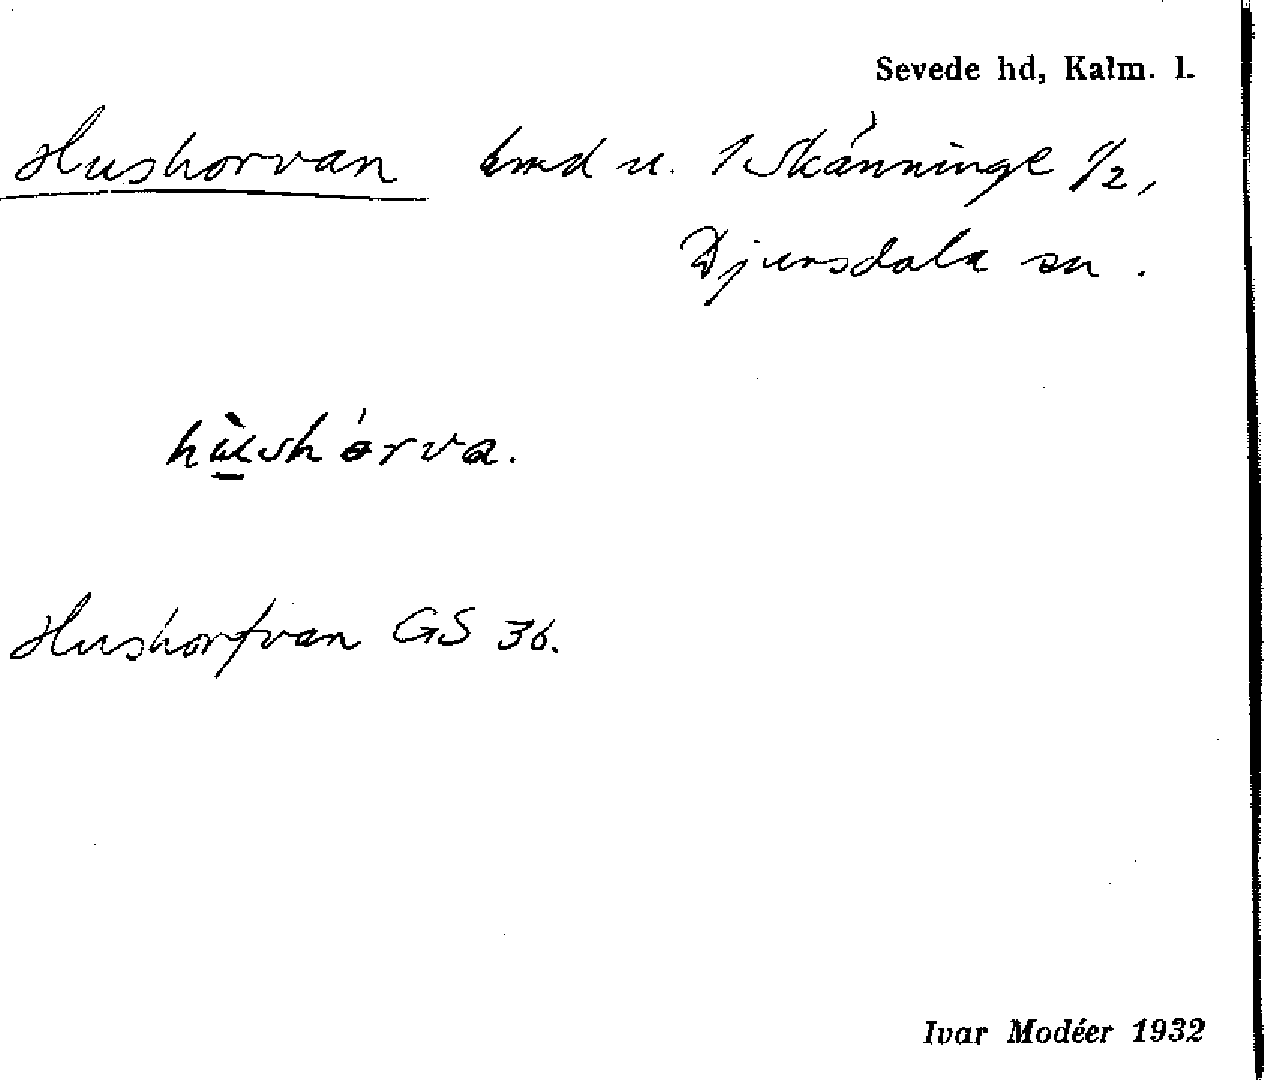 Sevede hd, Kalm. l.
Hushorvan bmd u. 1 Skänninge 1/2,
Djursdala sn.
hùshórva.
Hushorfvan GS 36.
Ivar Modéer 1932